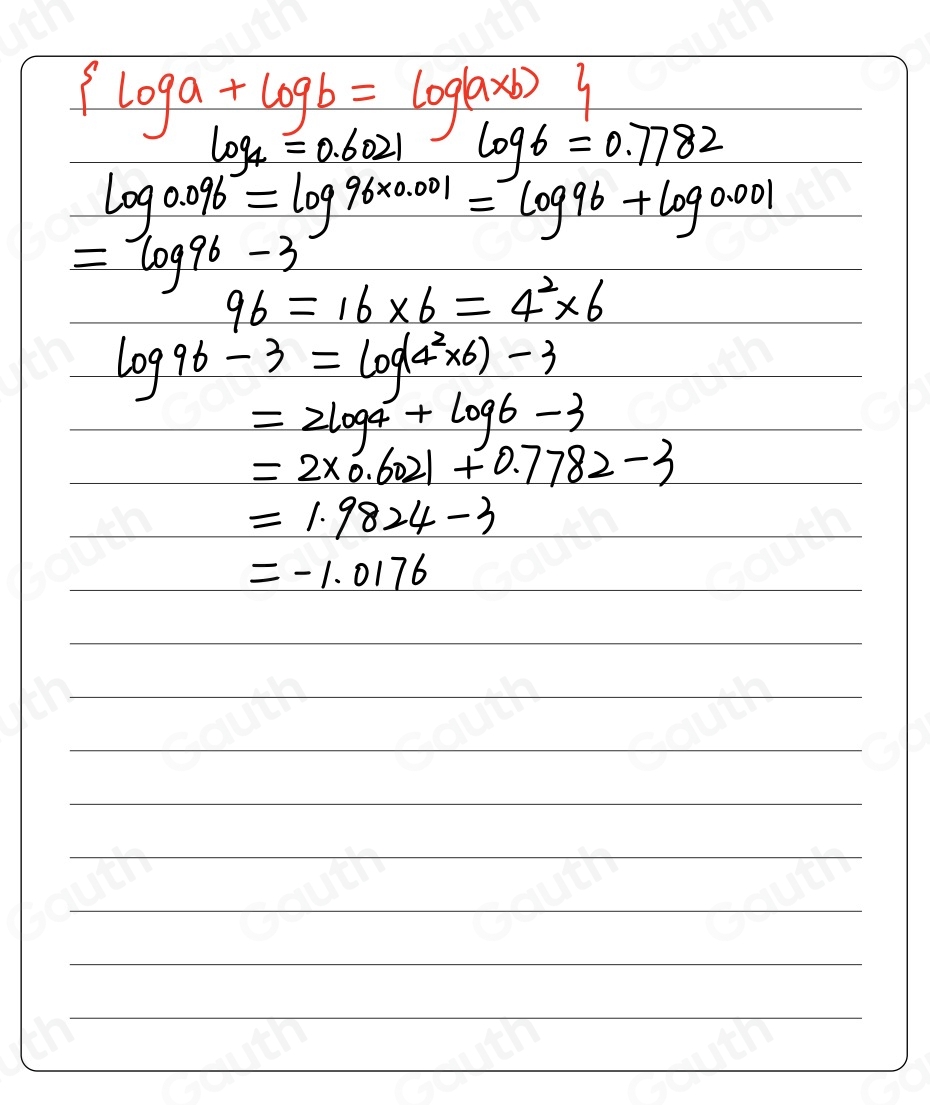 { log a + log b = log(a×b) }
log4 = 0.6021 log6 = 0.7782
log0.096 = log96×0.001 = log96 + log0.001
= log96 - 3
96 = 16 × 6 = 4²×6
log96 - 3 = log(4²×6) - 3
= 2log4 + log6 - 3
= 2×0.6021 + 0.7782 - 3
= 1.9824 - 3
= -1.0176